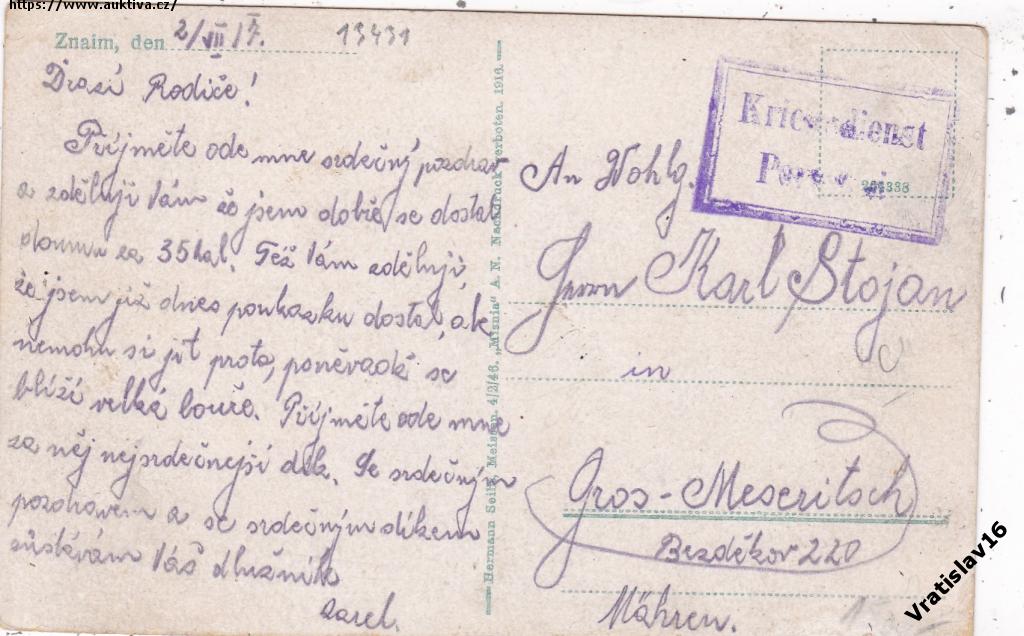 https://www.auktiva.cz/
Znaim, den 2/VII 17.
13431
Drazí Rodiče!
Přijměte ode mne srdečný pozdrav
a zděluji Vám že jsem dobře se dostal
domu za 35 hal. Též Vám zděluji
že jsem již dnes poukazku dostal, ale
nemohu si jít prota, poněvadč se
blíží velká bouře. Přijměte ode mne
za něj nejsrdečnejší dík. Se srdečným
pozdravem a se srdečným díkem
zůstávám Váš dlužník
Karel.
Hermann Seibt, Meissen. 4/2/46. „Misnia“ A. N. Nachdruck verboten. 1916.
Kriegsdienst
338
An Wohlg.
Herrn Karl Stojan
in
Gros-Meseritsch
Bezděkov 220
Mähren.
Vratislav16